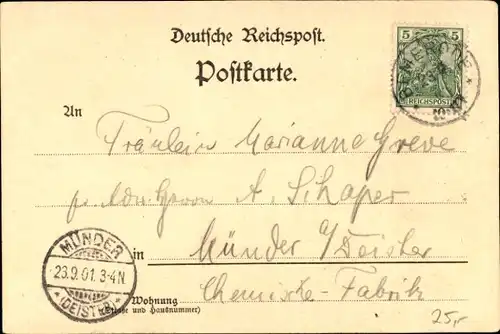 Deutsche Reichspost.
Postkarte.
5 5
REICHSPOST
An
Fräulein Marianne Greve
p. Adr. Herrn A. Schaper
in Münder a/Deister
Chemische-Fabrik
Wohnung
(Straße und Hausnummer)
MÜNDER
23.9.01. 3-4N.
*(DEISTER)*
25,-